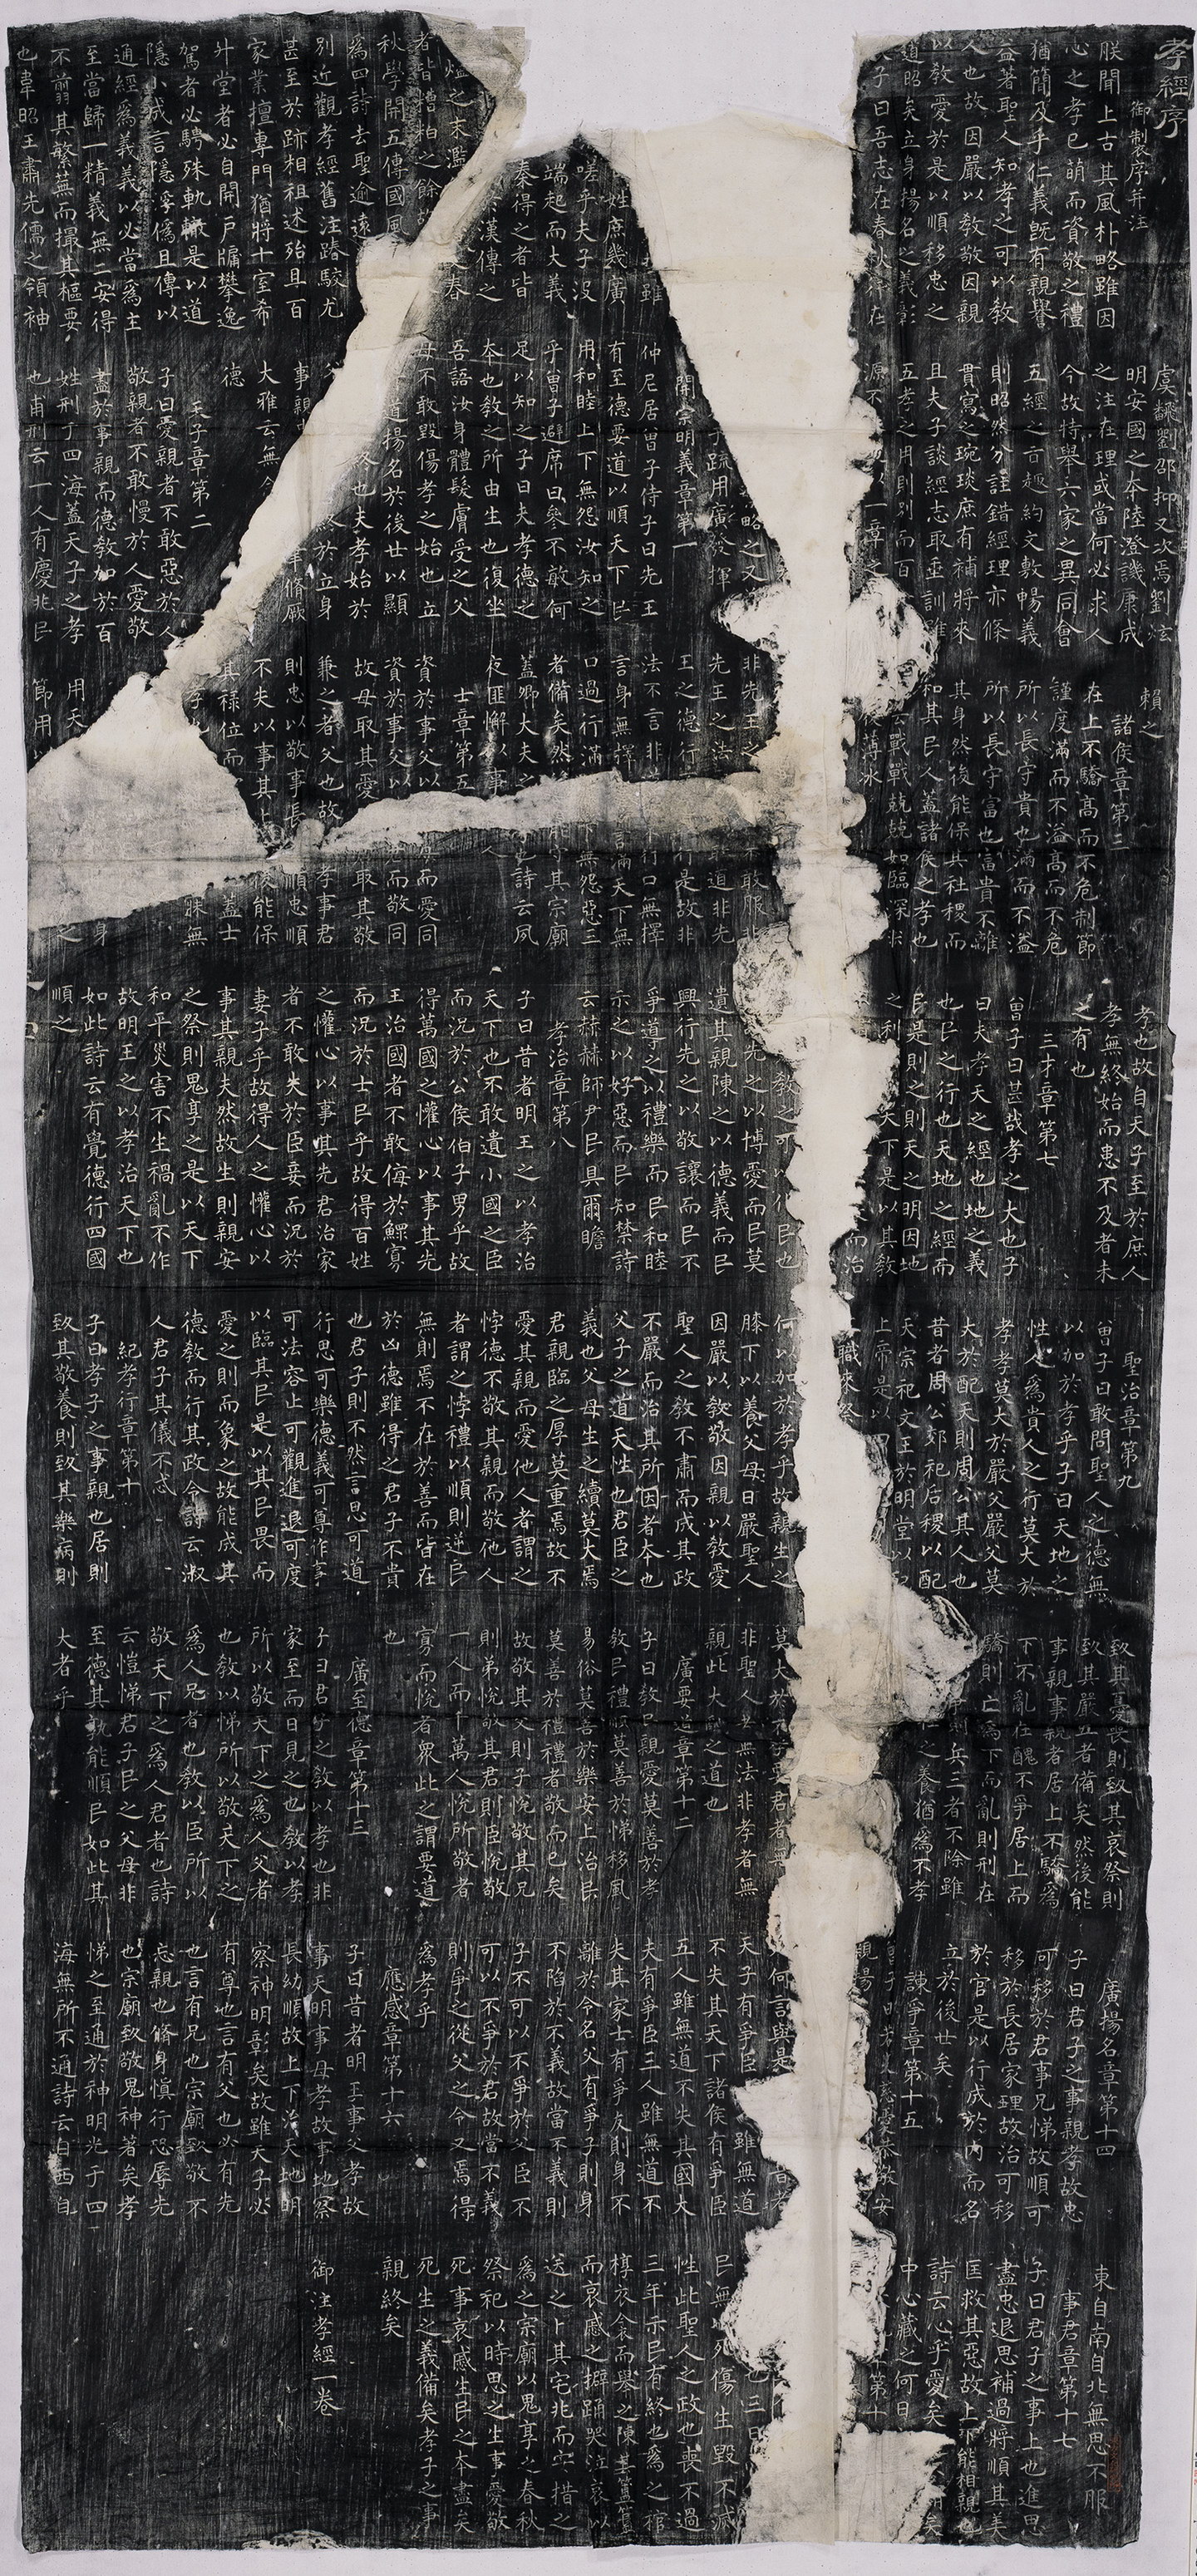 孝經序
御製序并注
朕聞上古其風朴略雖因
心之孝已萌而資敬之禮
猶簡及乎仁義既有親譽
益著聖人知孝之可以教
人也故因嚴以教敬因親
以教愛於是以順移忠之
道昭矣立身揚名之義彰
子曰吾志在春秋行在
雖
姓庶幾廣
嗟乎夫子沒
端起而大義
秦得之者皆
漢傳之
春
燼之末濫
者皆糟粕之餘故
秋學開五傳國風
爲四詩去聖逾遠
別近觀孝經舊注踳駮尤
甚至於跡相祖述殆且百
家業擅專門猶將十室希
升堂者必自開戶牖攀逸
駕者必騁殊軌轍是以道
隱小成言隱浮僞且傳以
通經爲義義以必當爲主
至當歸一精義無二安得
不翦其繁蕪而撮其樞要
也韋昭王肅先儒之領袖
虞翻劉邵抑又次焉劉炫
明安國之本陸澄譏康成
之注在理或當何必求人
今故特舉六家之異同會
五經之旨趣約文敷暢義
則昭然分註錯經理亦條
貫寫之琬琰庶有補將來
且夫子談經志取垂訓雖
五孝之用則別而百
源不 一章之
略之又
疏用廣發揮
開宗明義章第一
仲尼居曾子侍子曰先王
有至德要道以順天下民
用和睦上下無怨汝知之
乎曾子避席曰參不敏何
足以知之子曰夫孝德之
本也教之所由生也復坐
吾語汝身體髮膚受之父
母不敢毀傷孝之始也立
道揚名於後世以顯
終也夫孝始於
終於立身
事親 聿脩厥
大雅云無念
德
天子章第二
子曰愛親者不敢惡於人
敬親者不敢慢於人愛敬
盡於事親而德教加於百
姓刑于四海蓋天子之孝
也甫刑云一人有慶兆民
賴之
諸侯章第三
在上不驕高而不危制節
謹度滿而不溢高而不危
所以長守貴也滿而不溢
所以長守富也富貴不離
其身然後能保其社稷而
和其民人蓋諸侯之孝也
云戰戰兢兢如臨深
薄冰
非先王之 不敢服非
先王之法 道非先
王之德行 行是故非
法不言非道 行口無擇
言身無擇 言滿天下無
口過行滿 下無怨惡三
者備矣然 能守其宗廟
蓋卿大夫之 也詩云夙
夜匪懈以事 人
士章第五
資於事父以 母而愛同
資於事父以 君而敬同
故母取其愛 取其敬
兼之者父也故 孝事君
則忠以敬事長 順忠順
不失以事其上 後能保
其祿位而 蓋士
孝 寐無
用天
節用 之
孝也故自天子至於庶人
孝無終始而患不及者未
之有也
三才章第七
曾子曰甚哉孝之大也子
曰夫孝天之經也地之義
也民之行也天地之經而
民是則之則天之明因地
之利 天下是以其教
而治
教之可以化民也
先之以博愛而民莫
遺其親陳之以德義而民
興行先之以敬讓而民不
爭導之以禮樂而民和睦
示之以好惡而民知禁詩
云赫赫師尹民具爾瞻
孝治章第八
子曰昔者明王之以孝治
天下也不敢遺小國之臣
而況於公侯伯子男乎故
得萬國之懽心以事其先
王治國者不敢侮於鰥寡
而況於士民乎故得百姓
之懽心以事其先君治家
者不敢失於臣妾而況於
妻子乎故得人之懽心以
事其親夫然故生則親安
之祭則鬼享之是以天下
和平災害不生禍亂不作
故明王之以孝治天下也
如此詩云有覺德行四國
順之
聖治章第九
曾子曰敢問聖人之德無
以加於孝乎子曰天地之
性人爲貴人之行莫大於
孝孝莫大於嚴父嚴父莫
大於配天則周公其人也
昔者周公郊祀后稷以配
天宗祀文王於明堂以配
上帝是以四
職來祭
何以加於孝乎故親生之
膝下以養父母日嚴聖人
因嚴以教敬因親以教愛
聖人之教不肅而成其政
不嚴而治其所因者本也
父子之道天性也君臣之
義也父母生之續莫大焉
君親臨之厚莫重焉故不
愛其親而愛他人者謂之
悖德不敬其親而敬他人
者謂之悖禮以順則逆民
無則焉不在於善而皆在
於凶德雖得之君子不貴
也君子則不然言思可道
行思可樂德義可尊作事
可法容止可觀進退可度
以臨其民是以其民畏而
愛之則而象之故能成其
德教而行其政令詩云淑
人君子其儀不忒
紀孝行章第十
子曰孝子之事親也居則
致其敬養則致其樂病則
致其憂喪則致其哀祭則
致其嚴五者備矣然後能
事親事親者居上不驕爲
下不亂在醜不爭居上而
驕則亡爲下而亂則刑在
則兵三者不除雖
之養猶爲不孝
莫大於不孝要君者無
非聖人者無法非孝者無
親此大亂之道也
廣要道章第十二
子曰教民親愛莫善於孝
教民禮順莫善於悌移風
易俗莫善於樂安上治民
莫善於禮禮者敬而已矣
故敬其父則子悅敬其兄
則弟悅敬其君則臣悅敬
一人而千萬人悅所敬者
寡而悅者眾此之謂要道
也
廣至德章第十三
子曰君子之教以孝也非
家至而日見之也教以孝
所以敬天下之爲人父者
也教以悌所以敬天下之
爲人兄者也教以臣所以
敬天下之爲人君者也詩
云愷悌君子民之父母非
至德其孰能順民如此其
大者乎
廣揚名章第十四
子曰君子之事親孝故忠
可移於君事兄悌故順可
移於長居家理故治可移
於官是以行成於內而名
立於後世矣
諫爭章第十五
慈愛恭敬安
親揚
何言與是
天子有爭臣 雖無道
不失其天下諸侯有爭臣
五人雖無道不失其國大
夫有爭臣三人雖無道不
失其家士有爭友則身不
離於令名父有爭子則身
不陷於不義故當不義則
子不可以不爭於父臣不
可以不爭於君故當不義
則爭之從父之令又焉得
爲孝乎
應感章第十六
子曰昔者明王事父孝故
事天明事母孝故事地察
長幼順故上下治天地明
察神明彰矣故雖天子必
有尊也言有父也必有先
也言有兄也宗廟致敬不
忘親也脩身慎行恐辱先
也宗廟致敬鬼神著矣孝
悌之至通於神明光于四
海無所不通詩云自西自
東自南自北無思不服
事君章第十七
子曰君子之事上也進思
盡忠退思補過將順其美
匡救其惡故上下能相親也
詩云心乎愛矣
中心藏之何日
第十
三日
民無以死傷生毀不滅
性此聖人之政也喪不過
三年示民有終也爲之棺
椁衣衾而舉之陳其簠簋
而哀慼之擗踊哭泣哀以
送之卜其宅兆而安措之
爲之宗廟以鬼享之春秋
祭祀以時思之生事愛敬
死事哀慼生民之本盡矣
死生之義備矣孝子之事
親終矣
御注孝經一卷